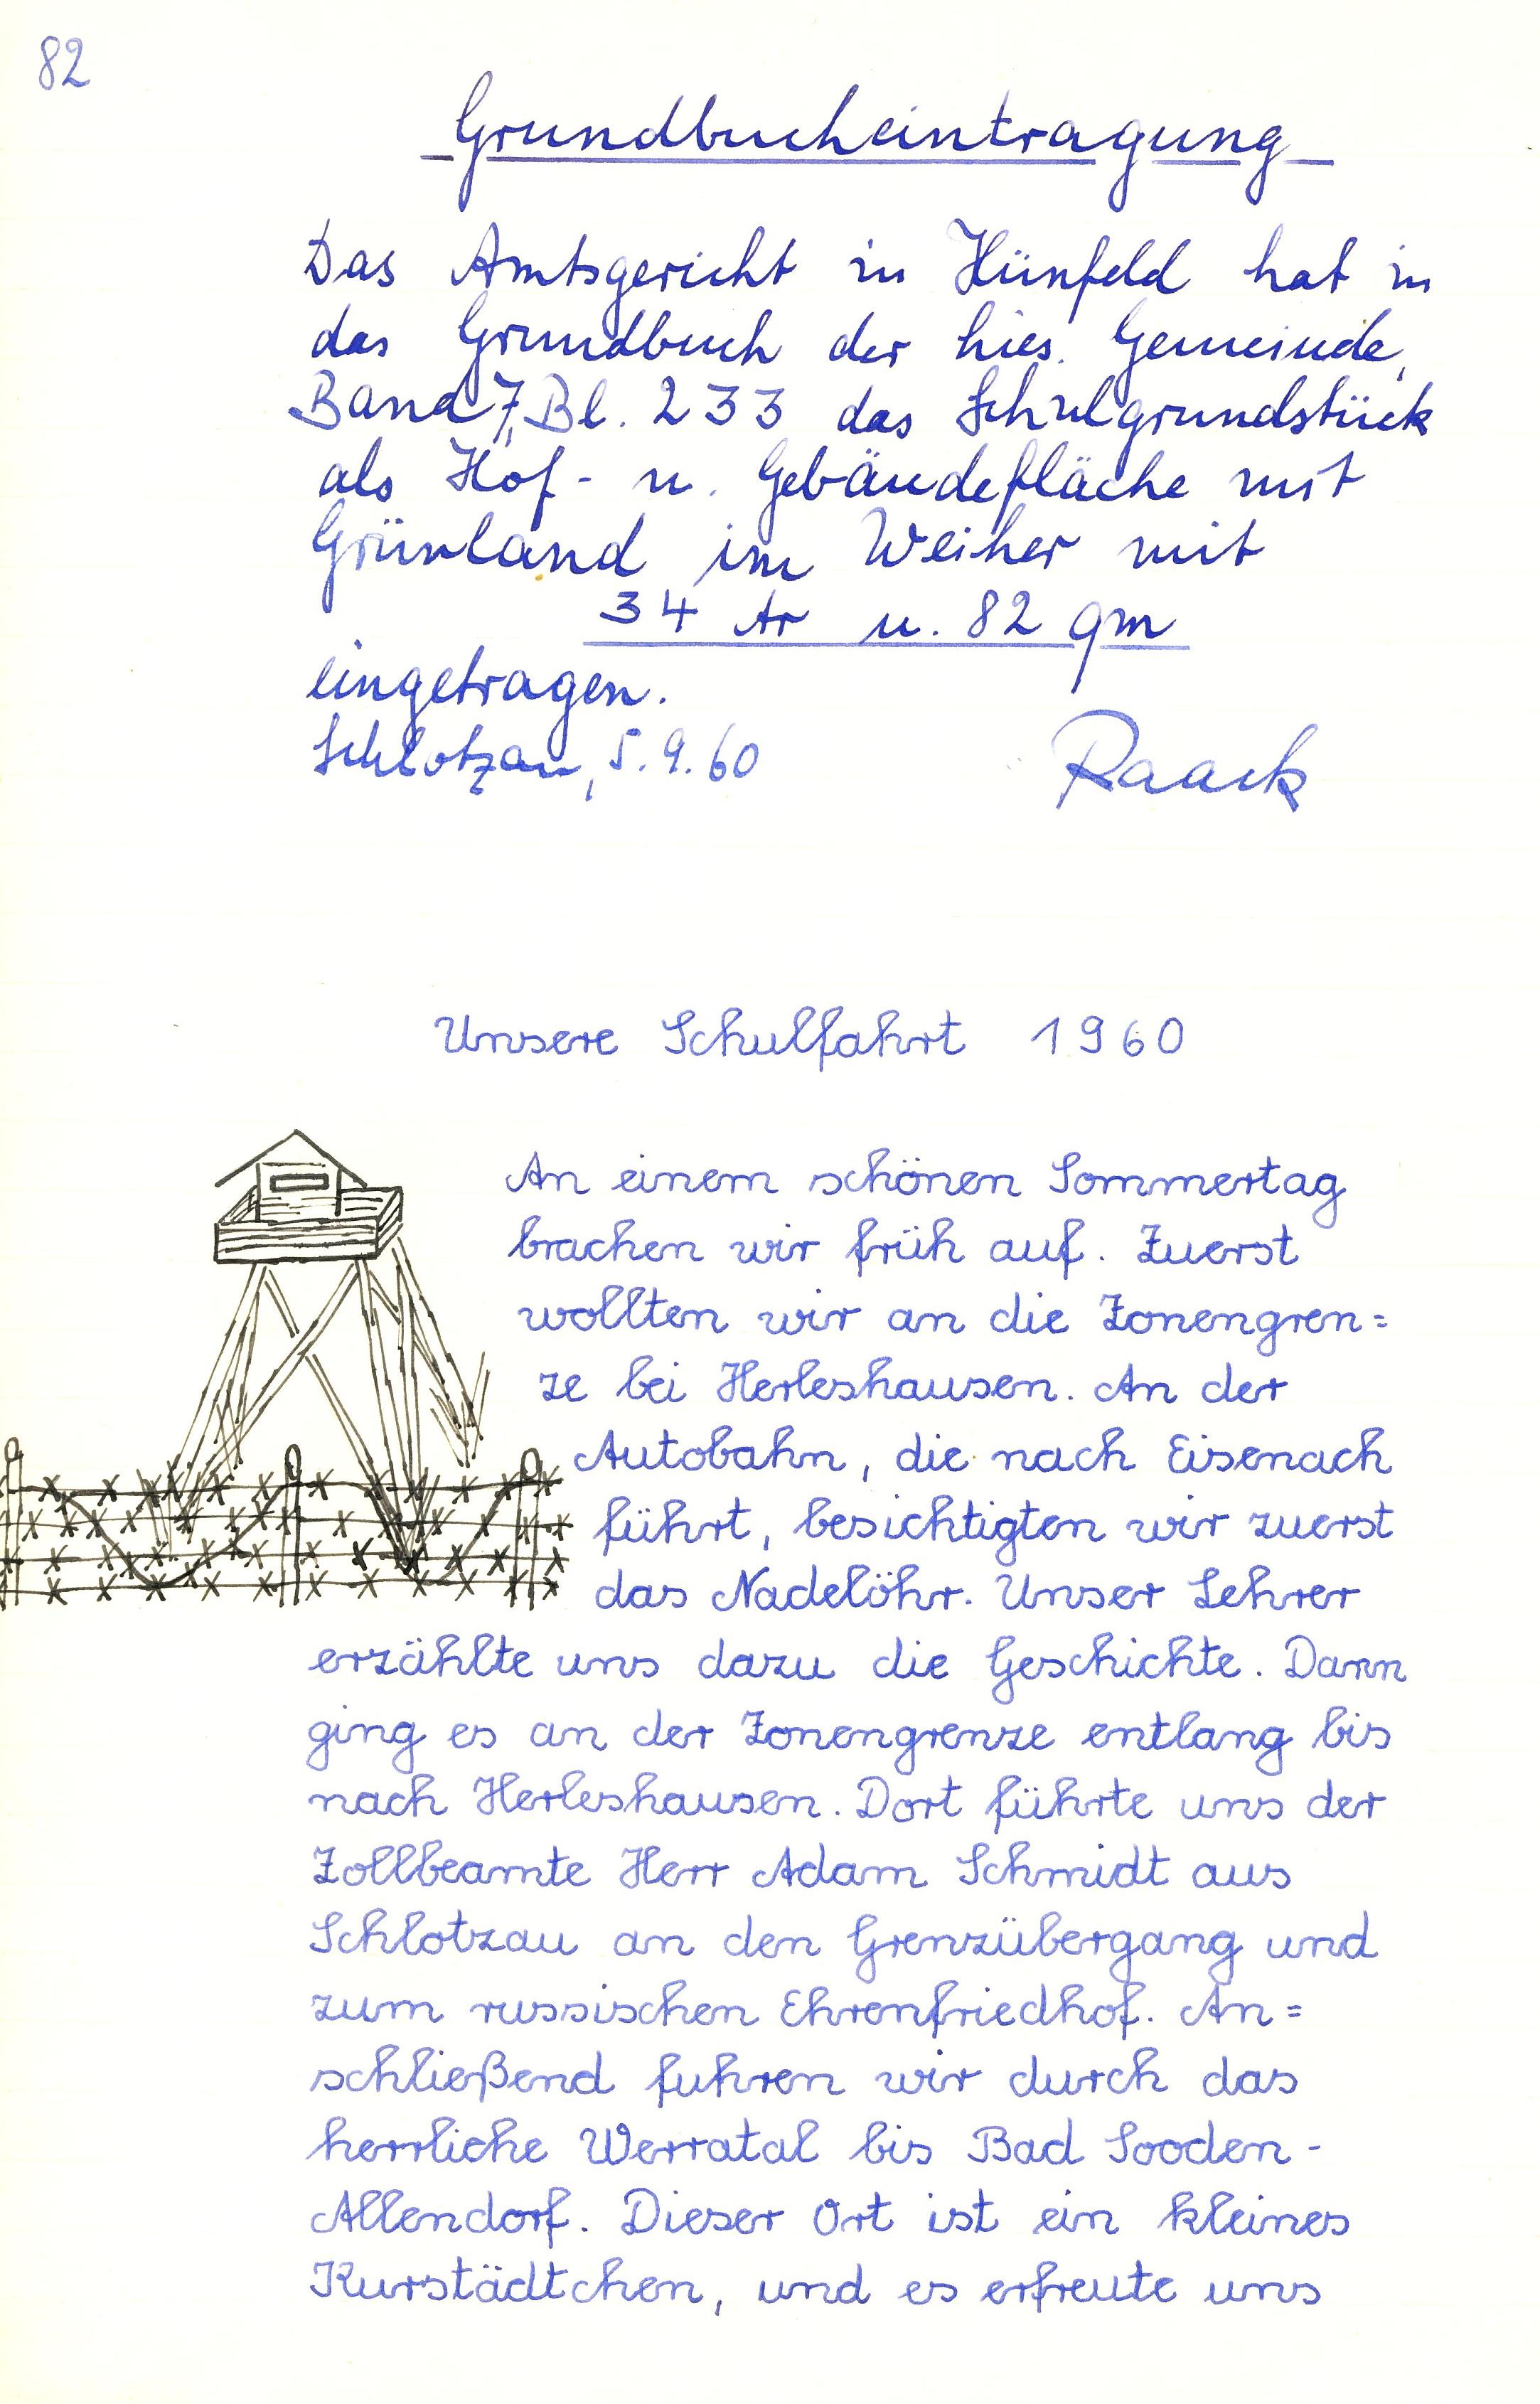 82
Grundbucheintragung
Das Amtsgericht in Hünfeld hat in
das Grundbuch der hies. Gemeinde,
Band 7, Bl. 233 das Schulgrundstück
als Hof- u. Gebäudefläche mit
Grünland im Weiher mit
34 Ar u. 82 qm
eingetragen.
Schlotzau, 5.9.60 Raack
Unsere Schulfahrt 1960
An einem schönen Sommertag
brachen wir früh auf. Zuerst
wollten wir an die Zonengren=
ze bei Herleshausen. An der
Autobahn, die nach Eisenach
führt, besichtigten wir zuerst
das Nadelöhr. Unser Lehrer
erzählte uns dazu die Geschichte. Dann
ging es an der Zonengrenze entlang bis
nach Herleshausen. Dort führte uns der
Zollbeamte Herr Adam Schmidt aus
Schlotzau an den Grenzübergang und
zum russischen Ehrenfriedhof. An=
schließend fuhren wir durch das
herrliche Werratal bis Bad Sooden-
Allendorf. Dieser Ort ist ein kleines
Kurstädtchen, und es erfreute uns